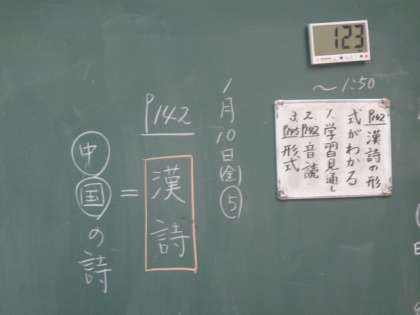 123
〜1:50
P142 漢詩の形
式がわかる
1. 学習見通し
2. P142 音読
3. P145 形式
1月10日(金)⑤
P142
漢詩
=
中国の詩